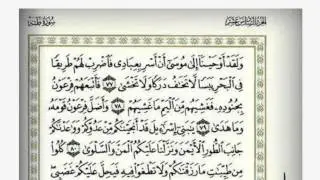 سُورَةُ طه الجزء السادس عشر
وَلَقَدْ أَوْحَيْنَآ إِلَىٰ مُوسَىٰٓ أَنْ أَسْرِ بِعِبَادِى فَٱضْرِبْ لَهُمْ طَرِيقًا
فِى ٱلْبَحْرِ يَبَسًا لَّا تَخَـٰفُ دَرَكًا وَلَا تَخْشَىٰ ٧٧ فَأَتْبَعَهُمْ فِرْعَوْنُ
بِجُنُودِهِۦ فَغَشِيَهُم مِّنَ ٱلْيَمِّ مَا غَشِيَهُمْ ٧٨ وَأَضَلَّ فِرْعَوْنُ قَوْمَهُۥ
وَمَا هَدَىٰ ٧٩ يَـٰبَنِىٓ إِسْرَٰٓءِيلَ قَدْ أَنجَيْنَـٰكُم مِّنْ عَدُوِّكُمْ وَوَٰعَدْنَـٰكُمْ
جَانِبَ ٱلطُّورِ ٱلْأَيْمَنَ وَنَزَّلْنَا عَلَيْكُمُ ٱلْمَنَّ وَٱلسَّلْوَىٰ ٨٠ كُلُوا۟
مِن طَيِّبَـٰتِ مَا رَزَقْنَـٰكُمْ وَلَا تَطْغَوْا۟ فِيهِ فَيَحِلَّ عَلَيْكُمْ غَضَبِى